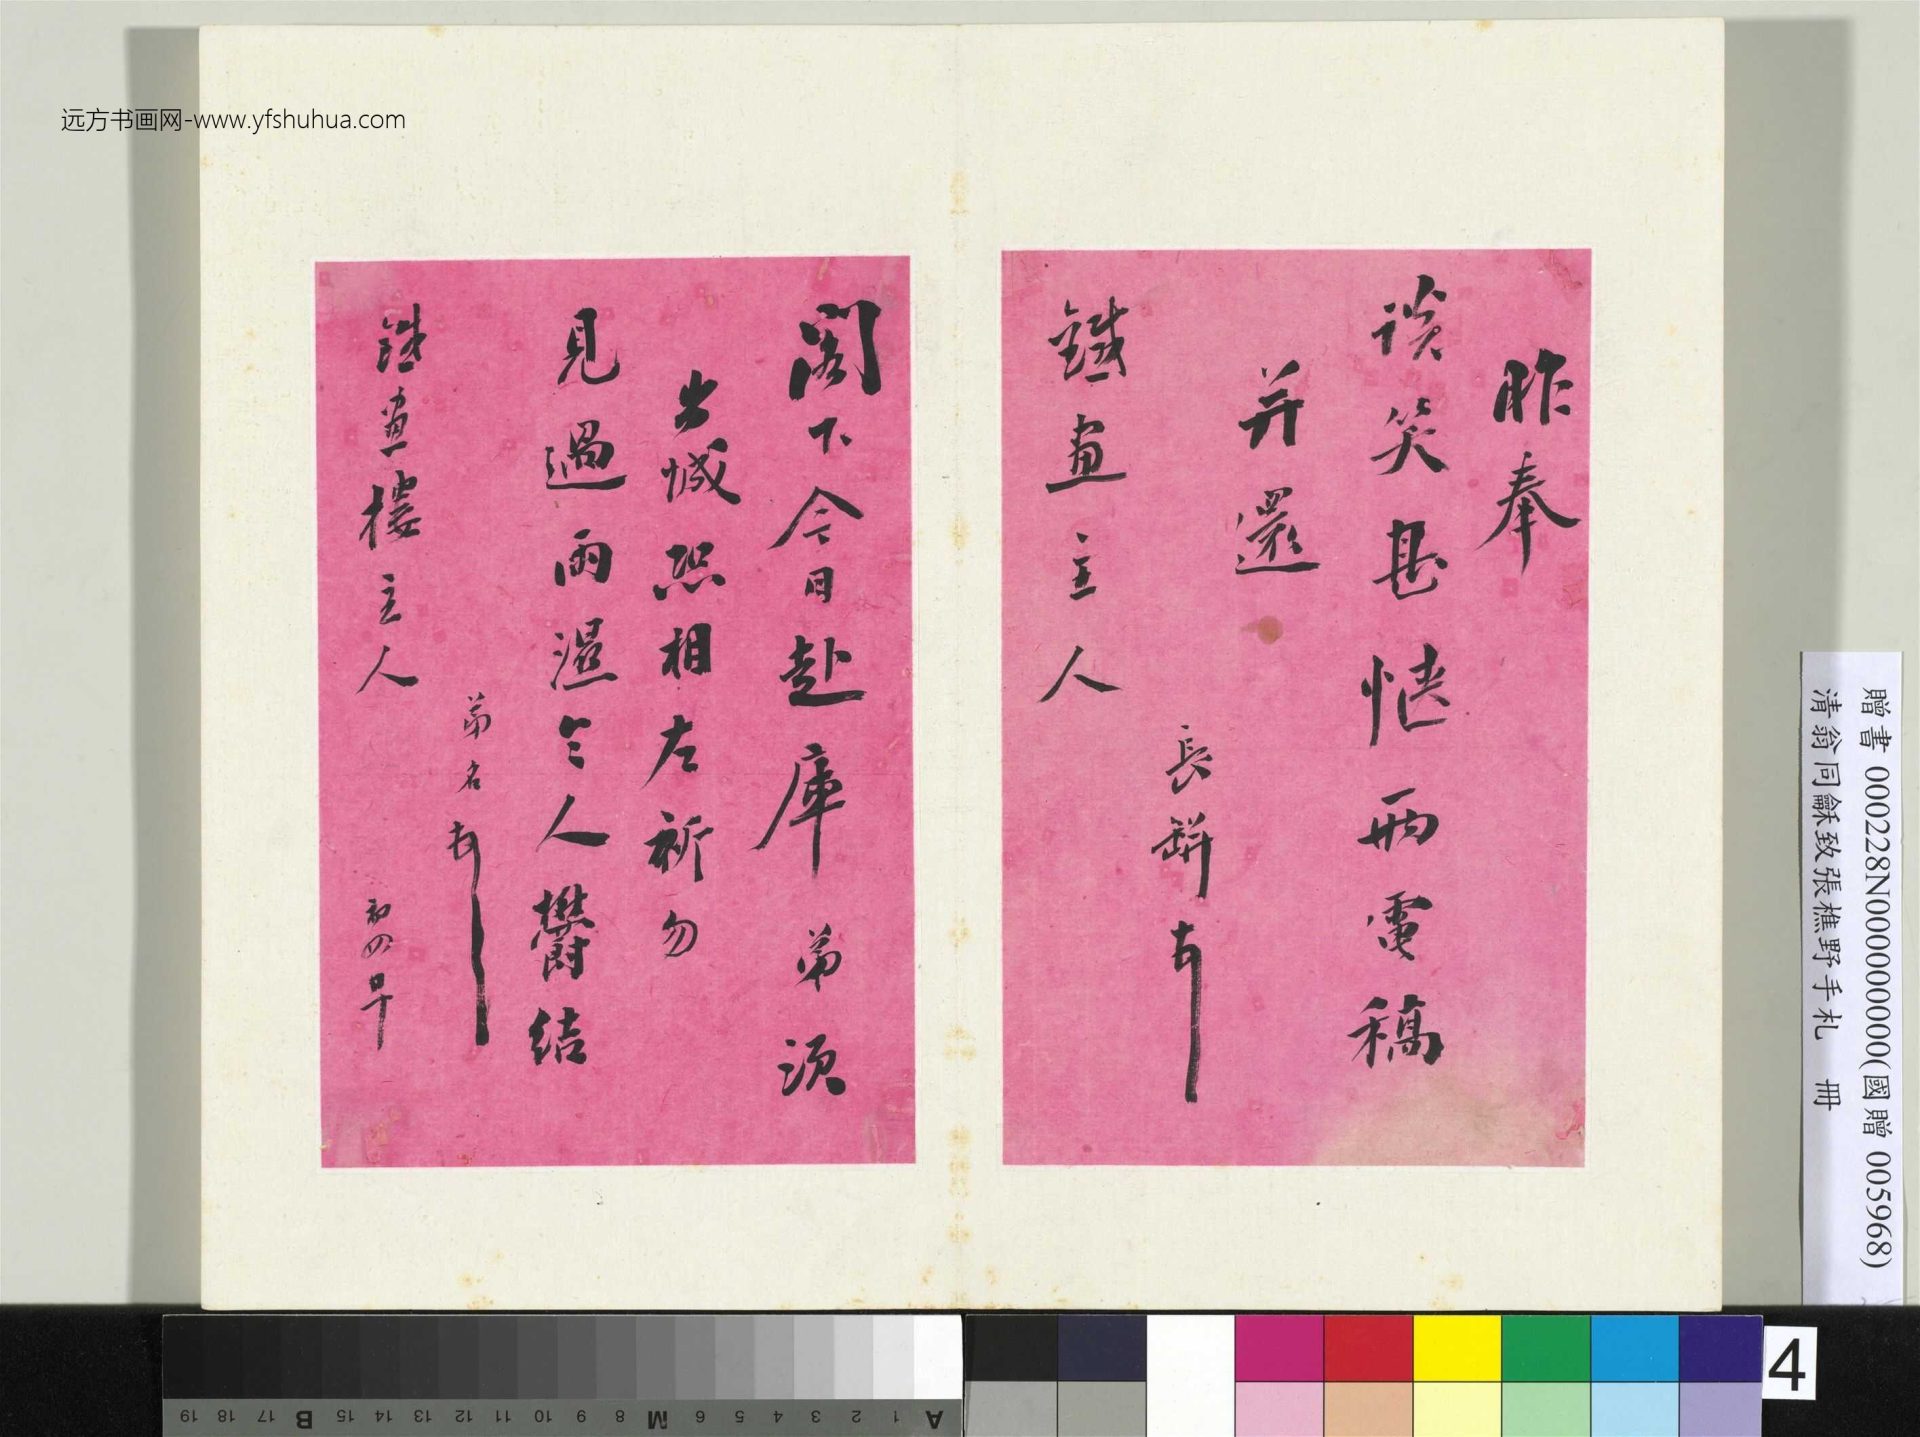 远方书画网-www.yfshuhua.com
昨奉
談笑甚愜兩電稿
并還
鐵畫主人
長缾頓
閣下今日赴庫弟須
出城恐相左祈勿
見過雨濕令人鬱結
弟名頓
鐵畫樓主人
初四早
贈書 000228N000000000(國贈 005968)
清翁同龢致張樵野手札 冊
4
A 1 2 3 4 5 6 M 8 9 10 11 12 13 14 15 B 17 18 19